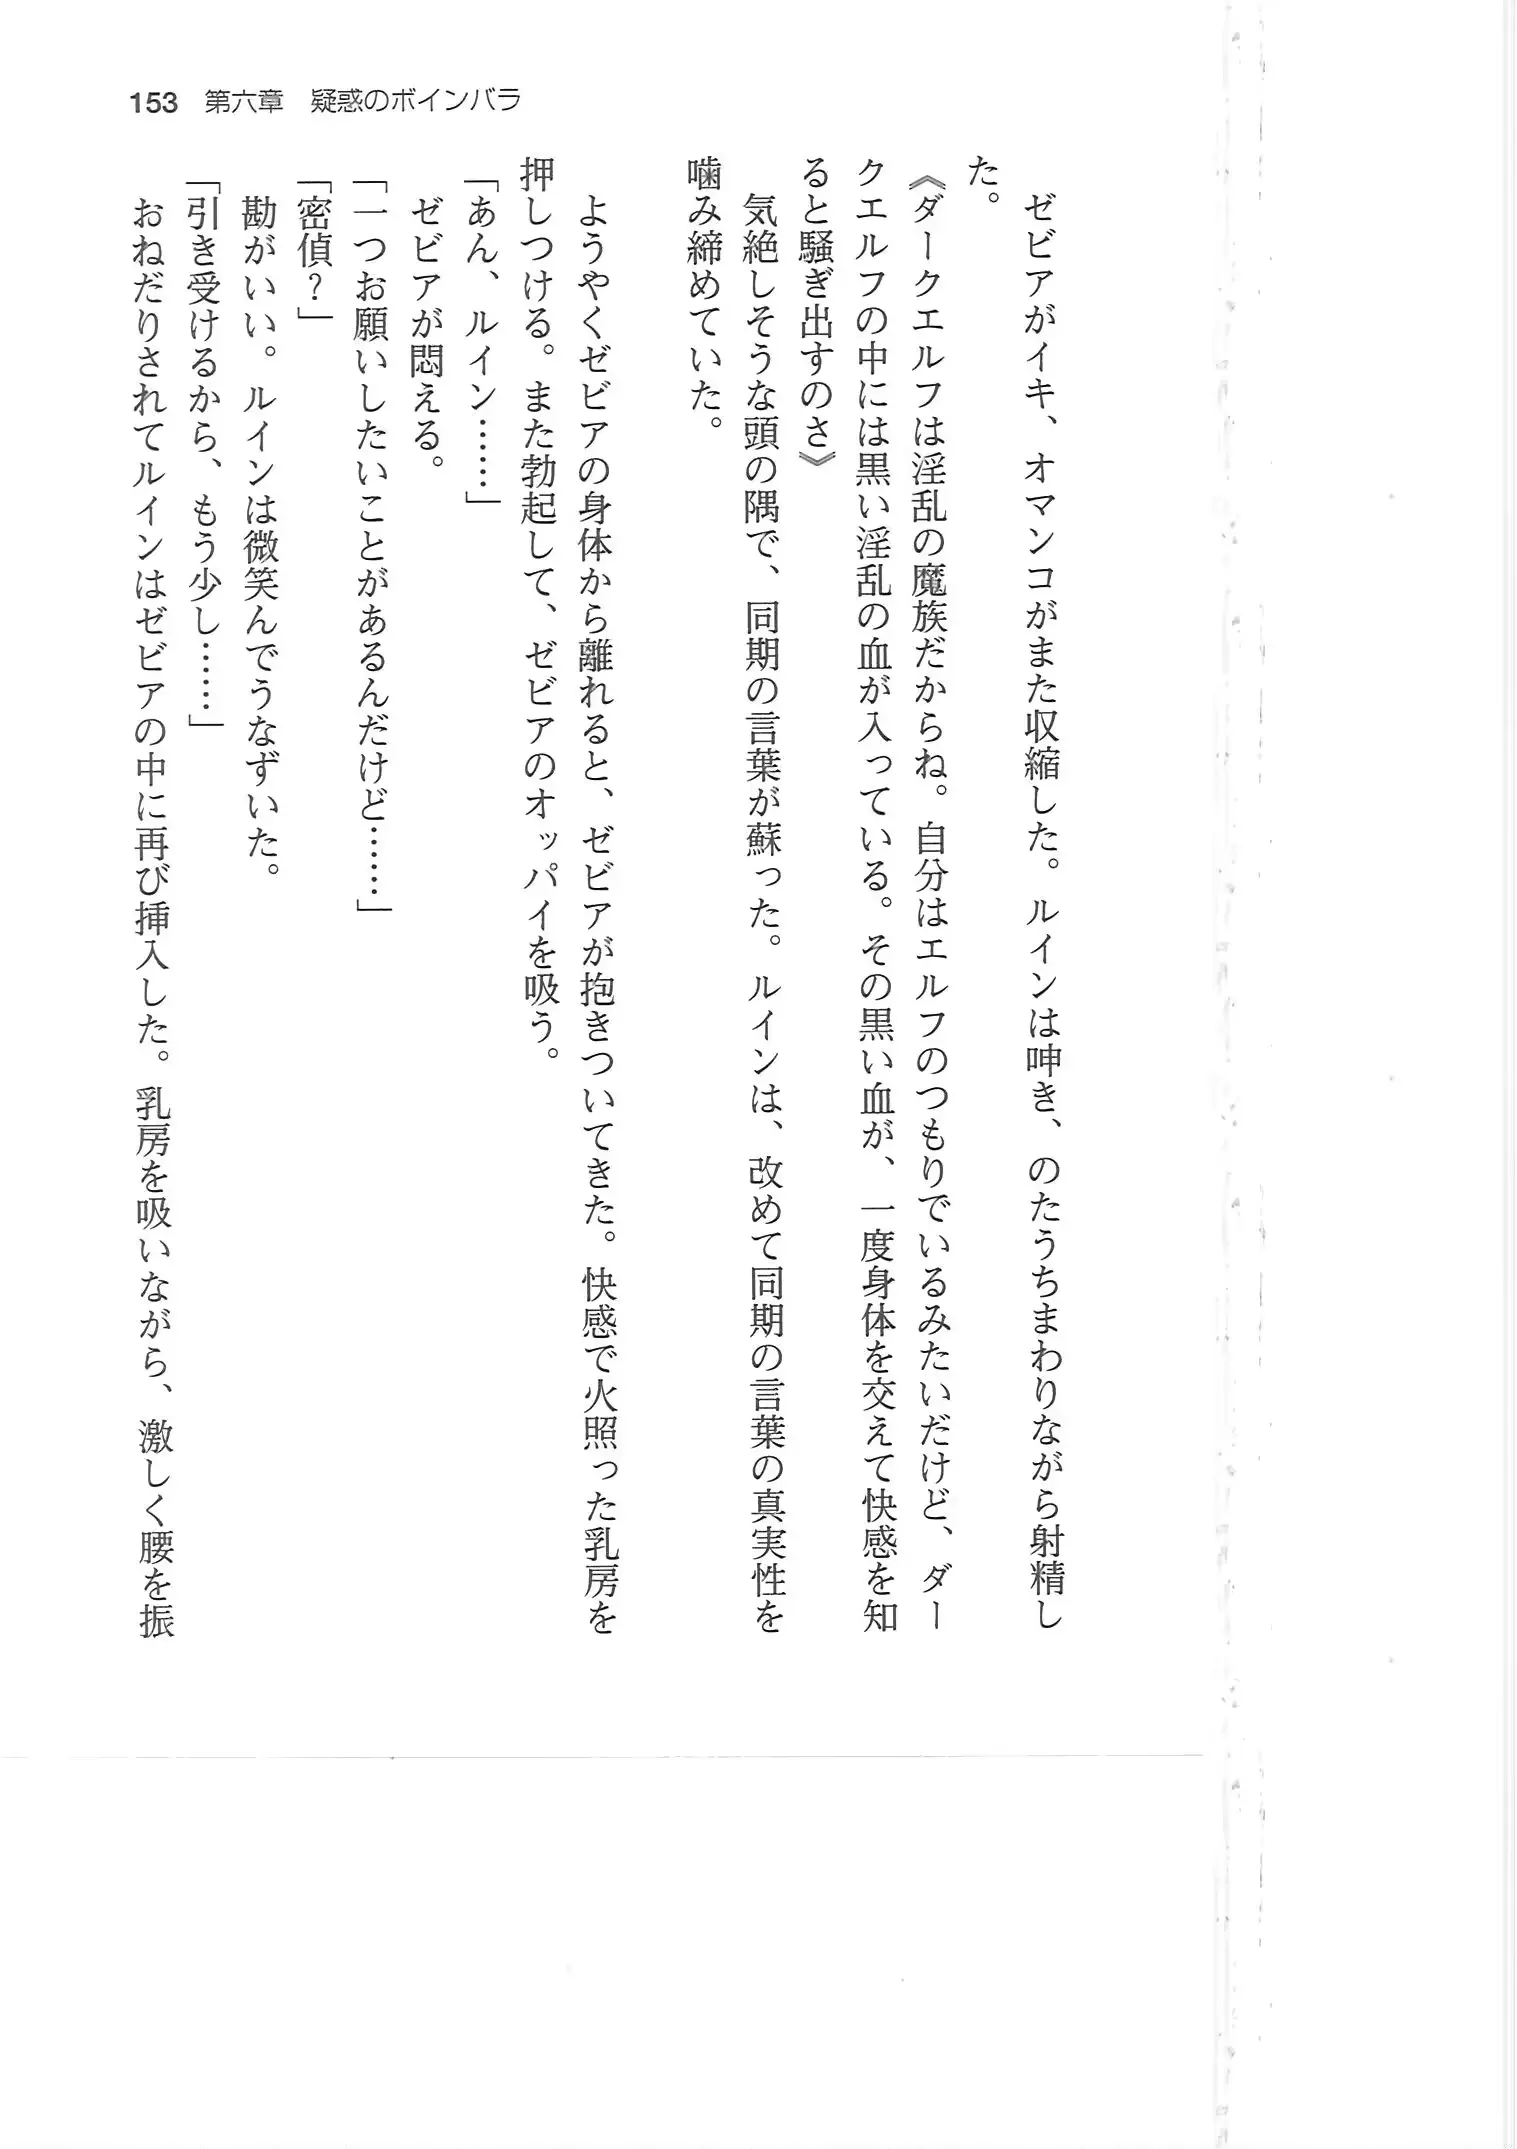 153　第六章　疑惑のボインバラ
　ゼビアがイキ、オマンコがまた収縮した。ルインは呻き、のたうちまわりながら射精し
た。
《ダークエルフは淫乱の魔族だからね。自分はエルフのつもりでいるみたいだけど、ダー
クエルフの中には黒い淫乱の血が入っている。その黒い血が、一度身体を交えて快感を知
ると騒ぎ出すのさ》
　気絶しそうな頭の隅で、同期の言葉が蘇った。ルインは、改めて同期の言葉の真実性を
噛み締めていた。
　ようやくゼビアの身体から離れると、ゼビアが抱きついてきた。快感で火照った乳房を
押しつける。また勃起して、ゼビアのオッパイを吸う。
「あん、ルイン……」
　ゼビアが悶える。
「一つお願いしたいことがあるんだけど……」
「密偵？」
　勘がいい。ルインは微笑んでうなずいた。
「引き受けるから、もう少し……」
　おねだりされてルインはゼビアの中に再び挿入した。乳房を吸いながら、激しく腰を振